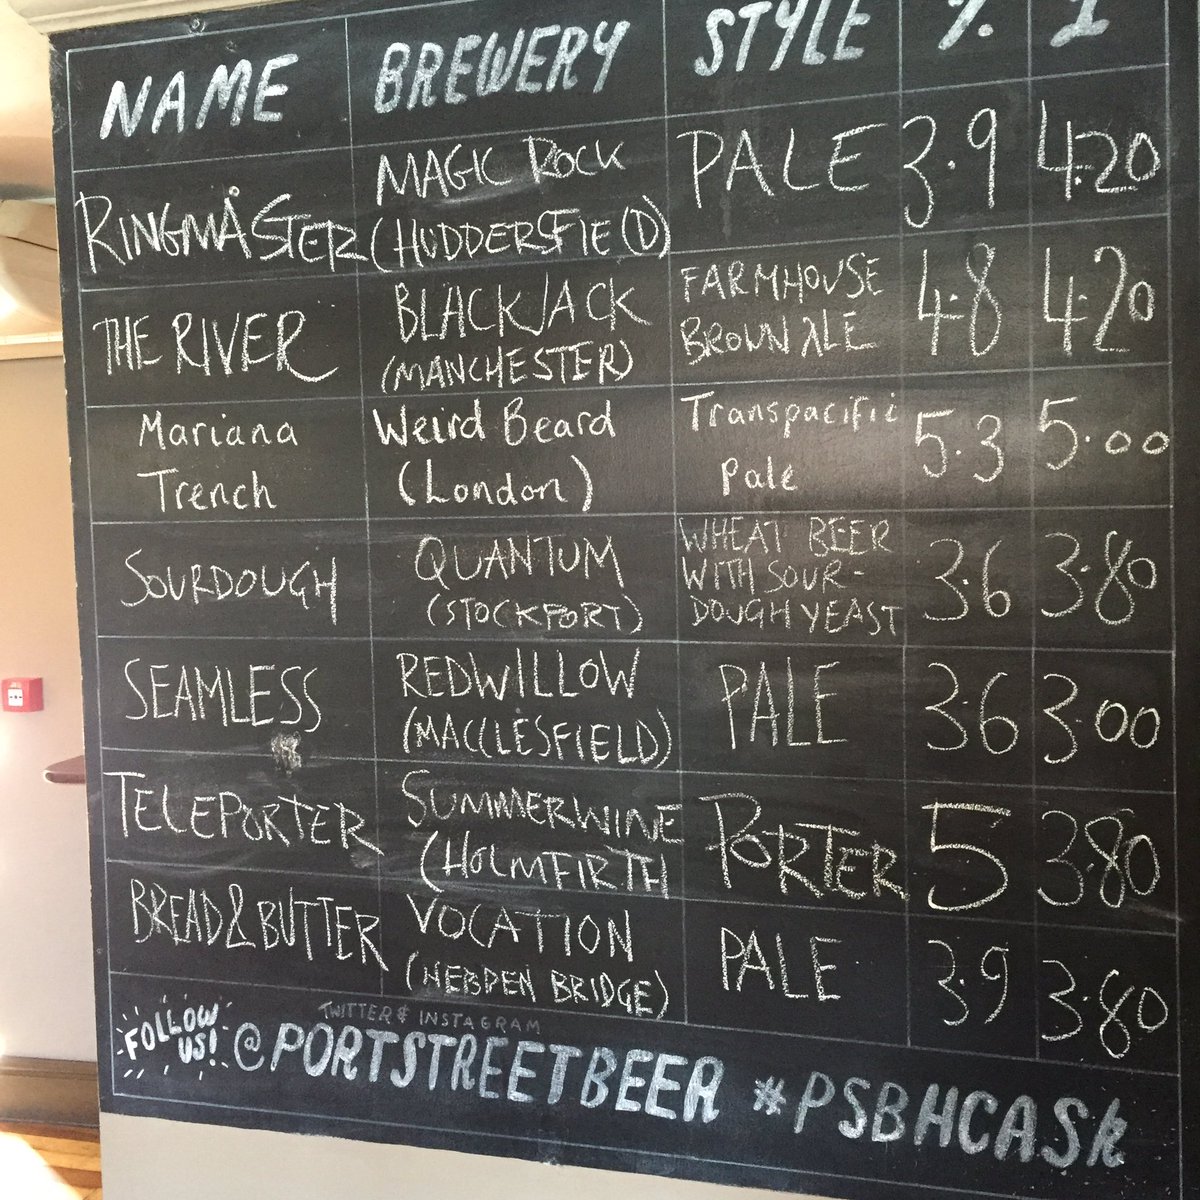 NAME BREWERY STYLE %
RINGMÅSTER MAGIC ROCK (HUDDERSFIELD) PALE 3.9 4.20
THE RIVER BLACKJACK (MANCHESTER) FARMHOUSE BROWN ALE 4.8 4.20
Mariana Trench Weird Beard (London) Transpacific Pale 5.3 5.00
SOURDOUGH QUANTUM (STOCKPORT) WHEAT BEER WITH SOUR-DOUGH YEAST 3.6 3.80
SEAMLESS REDWILLOW (MACCLESFIELD) PALE 3.6 3.00
TELEPORTER SUMMERWINE (HOLMFIRTH PORTER 5 3.80
BREAD & BUTTER VOCATION (HEBDEN BRIDGE) PALE 3.9 3.80
TWITTER & INSTAGRAM
FOLLOW US! @PORTSTREETBEER #PSBHCASK